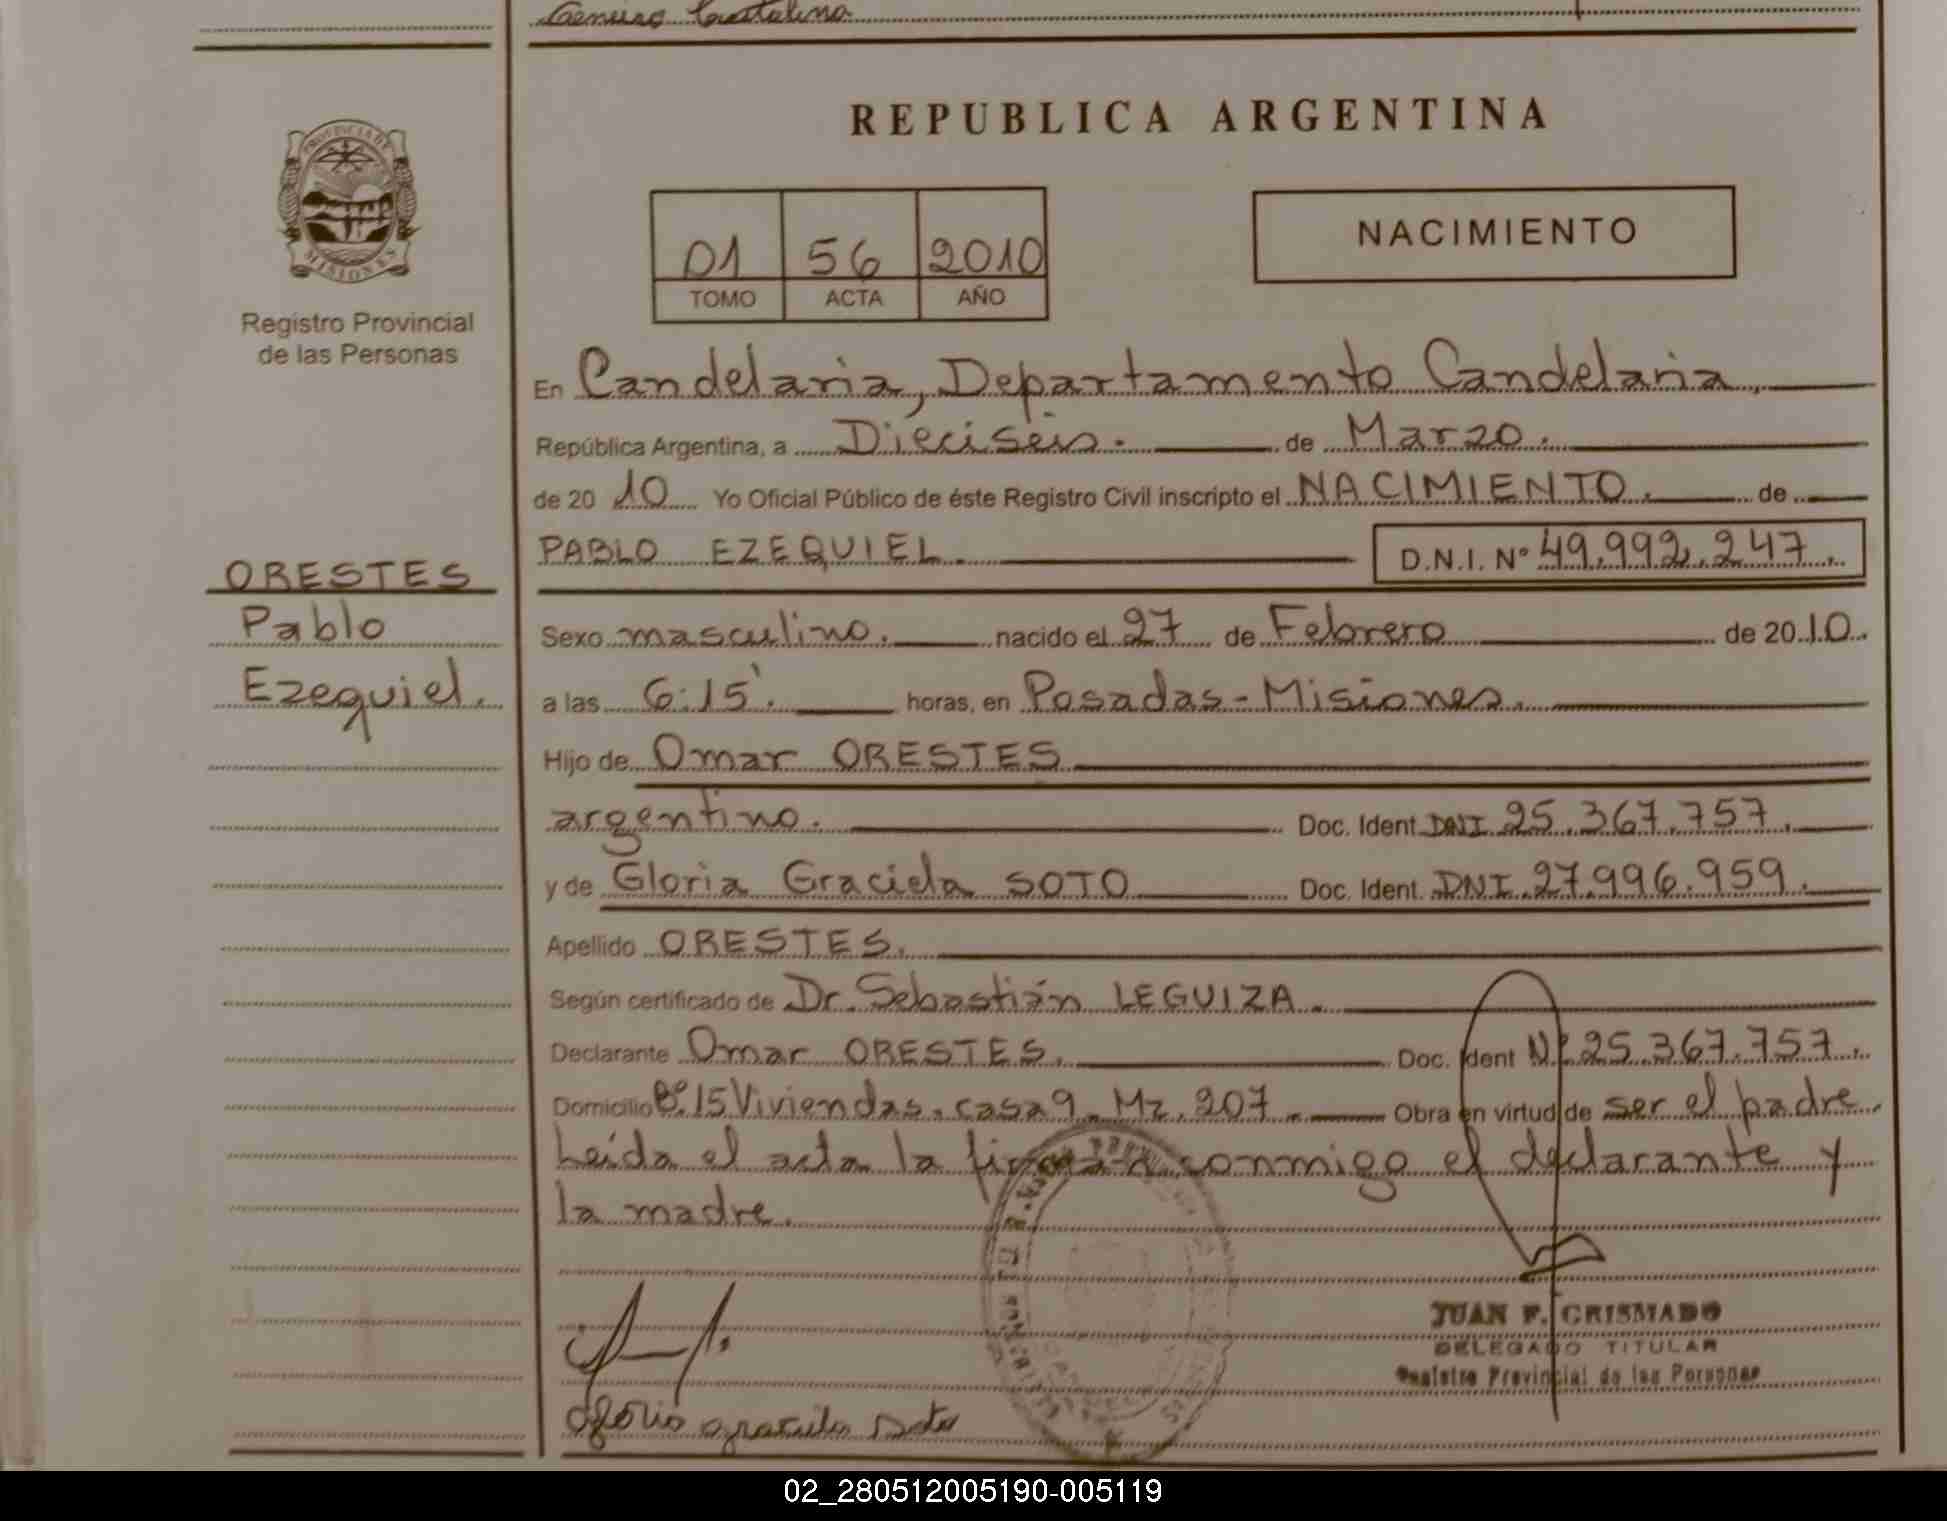 PROVINCIA DE
MISIONES
Registro Provincial
de las Personas
ORESTES
Pablo
Ezequiel.
REPUBLICA ARGENTINA
01 56 2010
TOMO ACTA AÑO
NACIMIENTO
En Candelaria, Departamento Candelaria,
República Argentina, a Dieciseis. de Marzo.
de 20 10 Yo Oficial Público de éste Registro Civil inscripto el NACIMIENTO. de
PABLO EZEQUIEL. D.N.I. Nº 49.992.247.
Sexo masculino. nacido el 27 de Febrero de 20 10.
a las 6:15'. horas, en Posadas-Misiones.
Hijo de Omar ORESTES
argentino. Doc. Ident. DNI 25.367.757.
y de Gloria Graciela SOTO Doc. Ident. DNI.27.996.959.
Apellido ORESTES.
Según certificado de Dr. Sebastián LEGUIZA.
Declarante Omar ORESTES. Doc. Ident Nº 25.367.757.
Domicilio Bº.15 Viviendas. casa 9. Mz. 207. Obra en virtud de ser el padre.
Leída el acta la firman conmigo el declarante y
la madre.
JUAN F. CRISMADO
DELEGADO TITULAR
Registro Provincial de las Personas
02_280512005190-005119